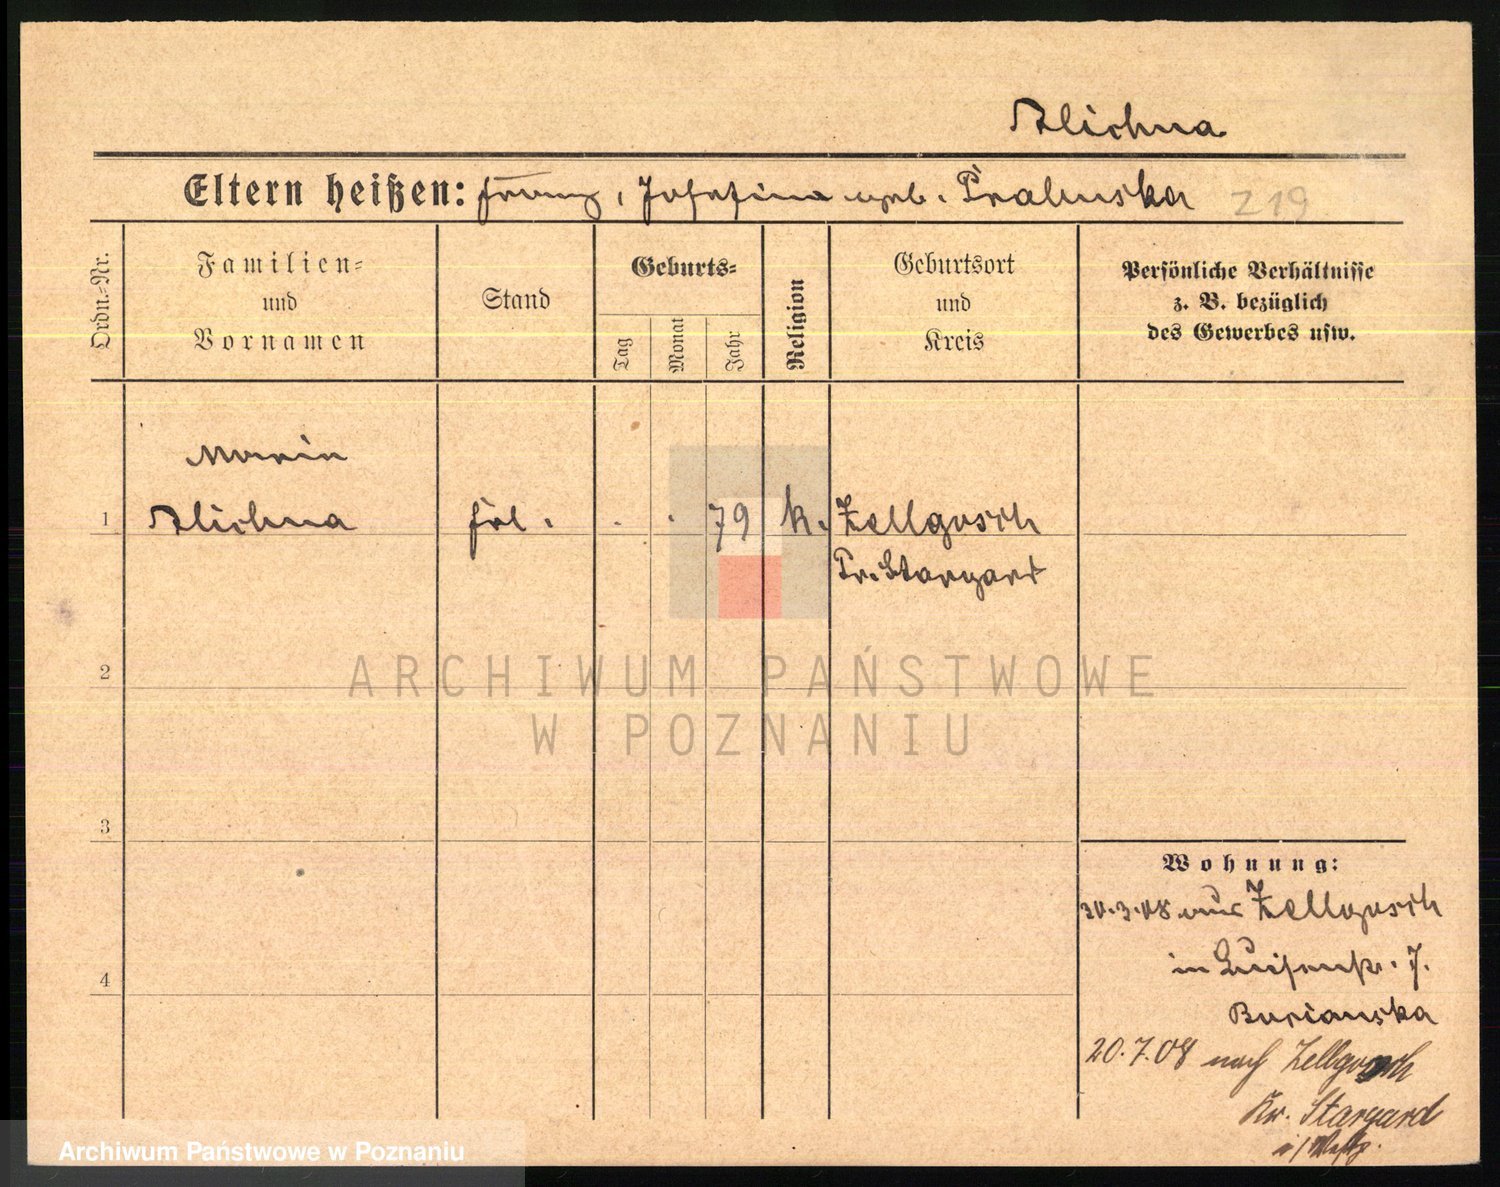 Klichna
Eltern heißen: Franz, Josefina geb. Pralinska
Z 19
Ordn.-Nr.
Familien-
und
Vornamen
Stand
Geburts-
Tag
Monat
Jahr
Religion
Geburtsort
und
Kreis
Persönliche Verhältnisse
z. B. bezüglich
des Gewerbes usw.
Maria
1 Klichna frl. . . 79 k. Zellgosch
Pr. Stargard
2
3
4
Wohnung:
30.3.08 aus Zellgosch
in Luisenstr. 7.
Burianska
20.7.08 nach Zellgosch
Kr. Stargard
i/Westpr.
ARCHIWUM PAŃSTWOWE
W POZNANIU
Archiwum Państwowe w Poznaniu